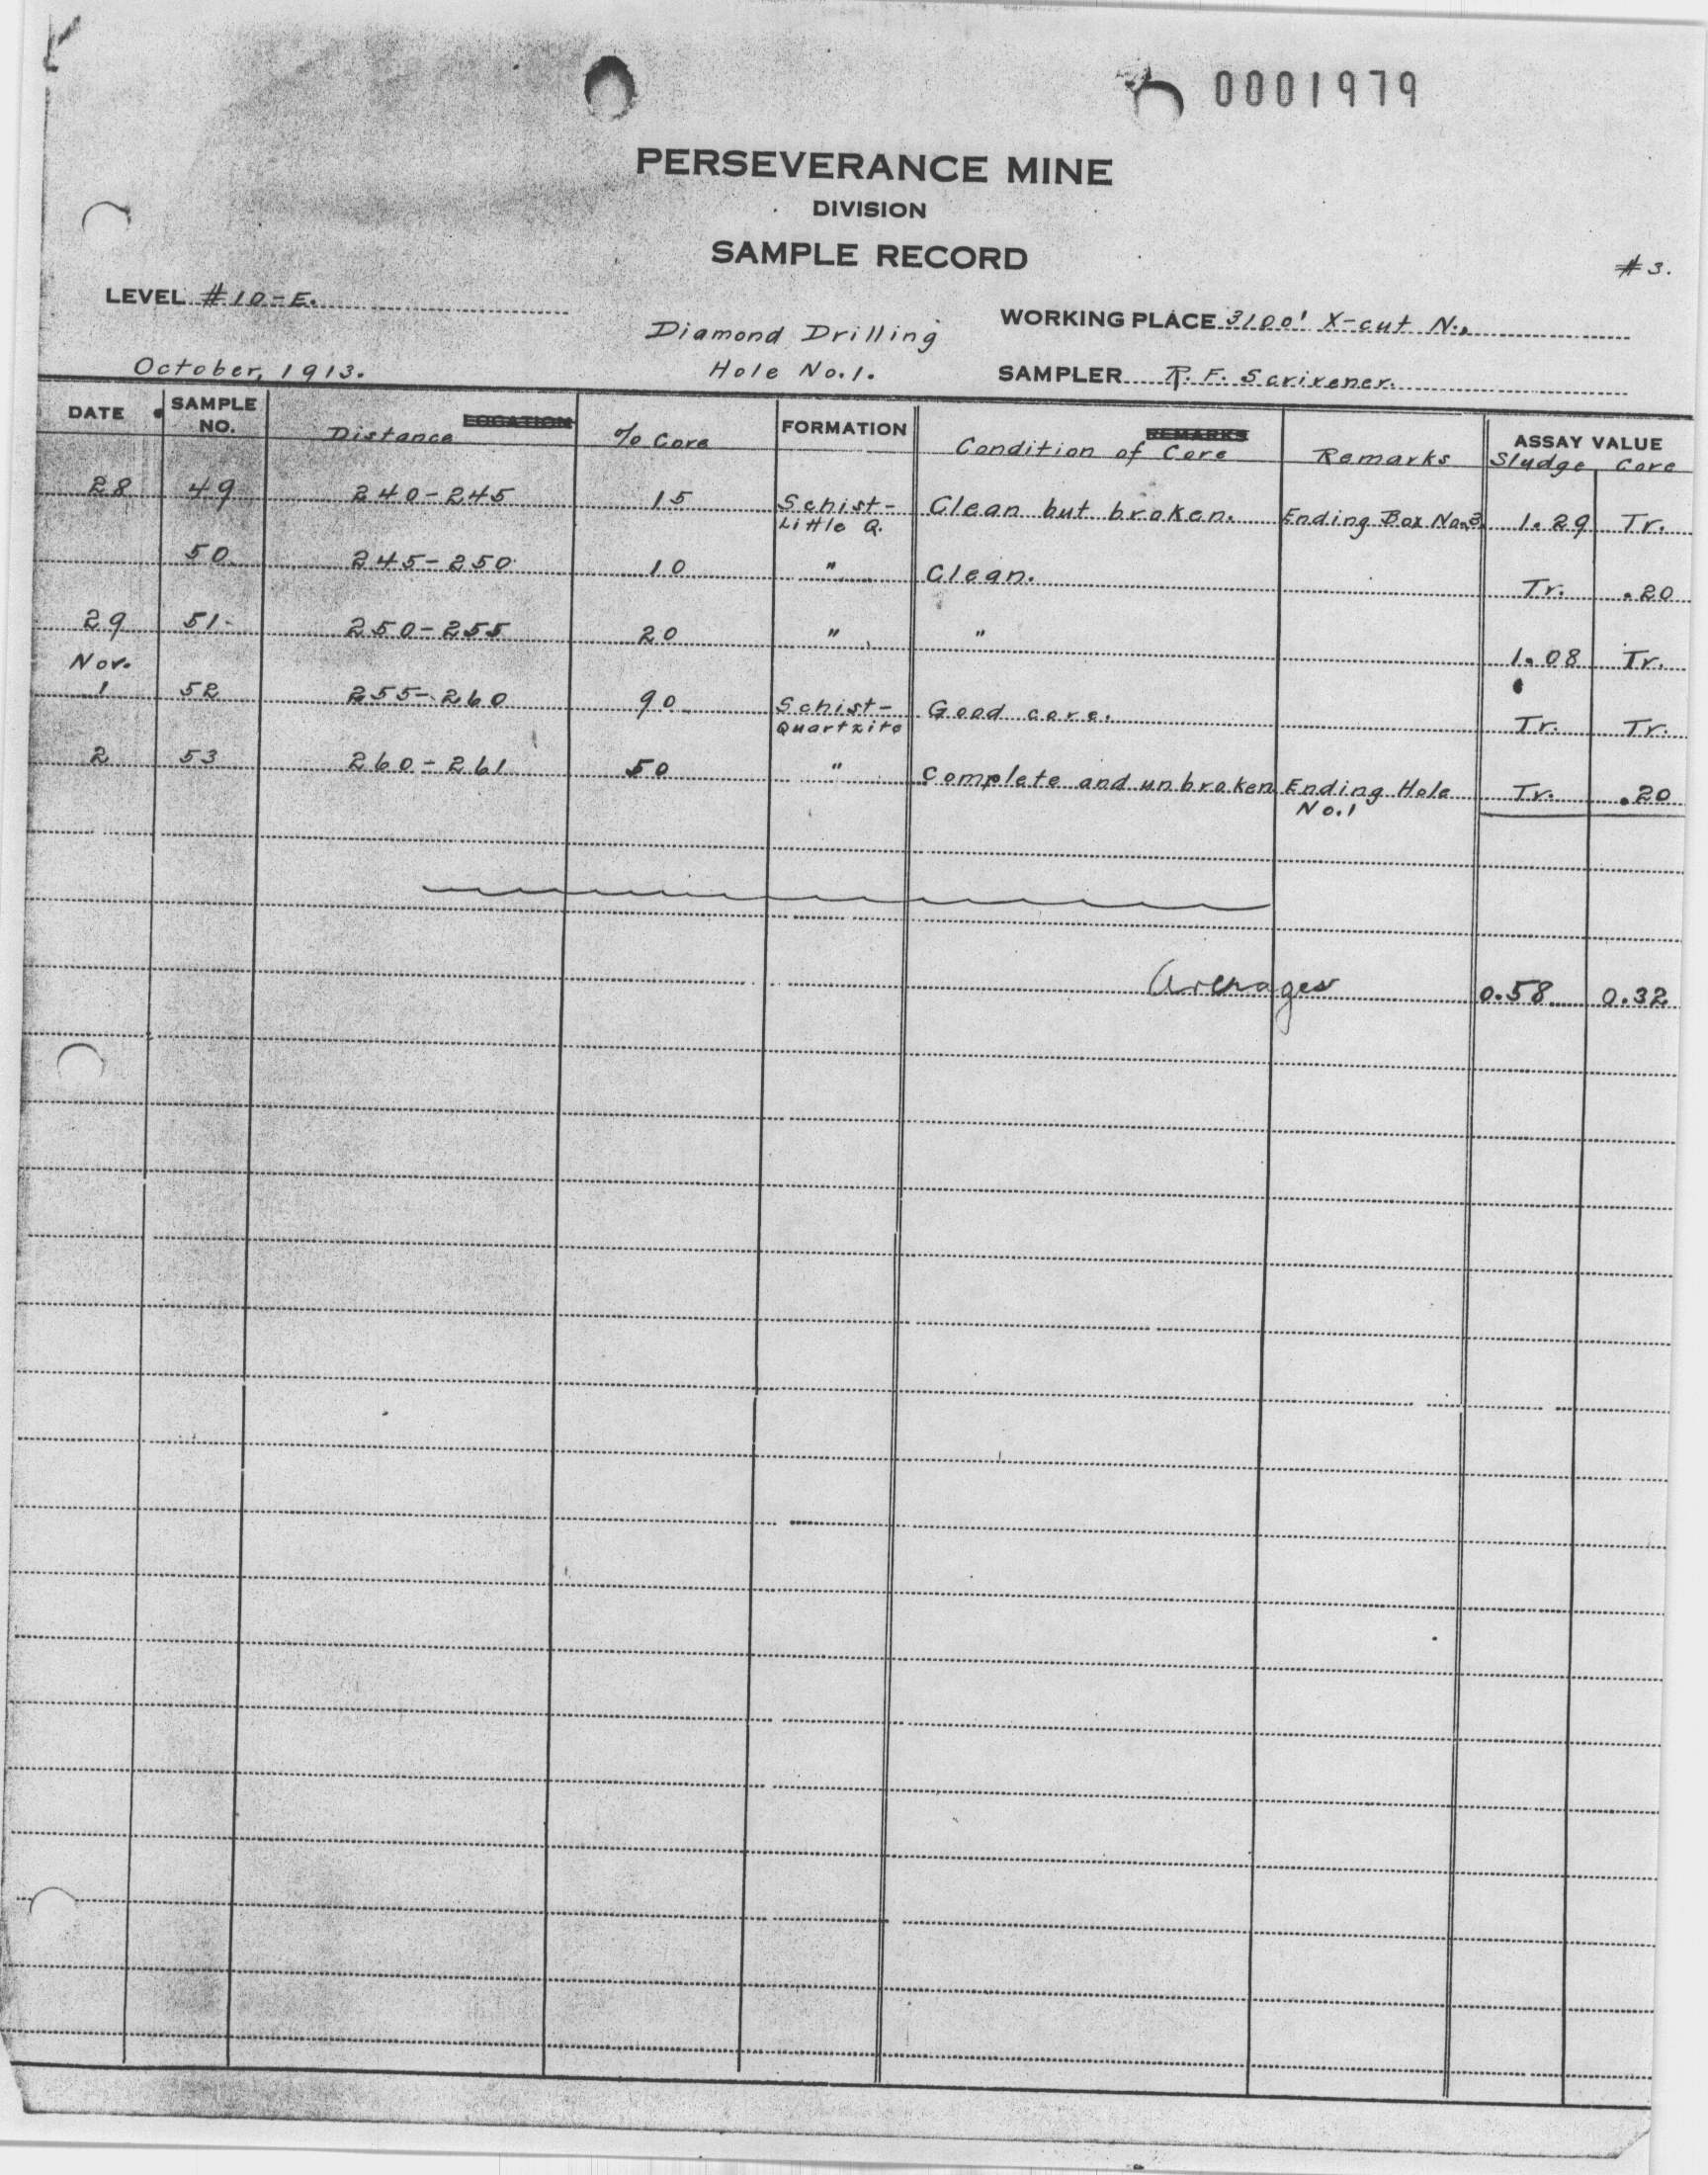 0001979
PERSEVERANCE MINE
DIVISION
SAMPLE RECORD
#3.
LEVEL #10-E.
WORKING PLACE 3100' X-cut N.,
Diamond Drilling
October, 1913.
Hole No.1.
SAMPLER R. F. Scrivener.
DATE SAMPLE NO. LOCATION Distance % Core FORMATION REMARKS Condition of Core Remarks ASSAY VALUE Sludge Core
28 49 240-245 15 Schist- Clean but broken. Ending Box No. 3. 1.29 Tr.
Little Q.
50 245-250 10 " Clean. Tr. .20
29 51 250-255 20 " " 1.08 Tr.
Nov.
1 52 255-260 90 Schist- Good core. Tr. Tr.
Quartzite
2 53 260-261 50 " Complete and unbroken Ending Hole Tr. .20
No.1
Averages 0.58 0.32